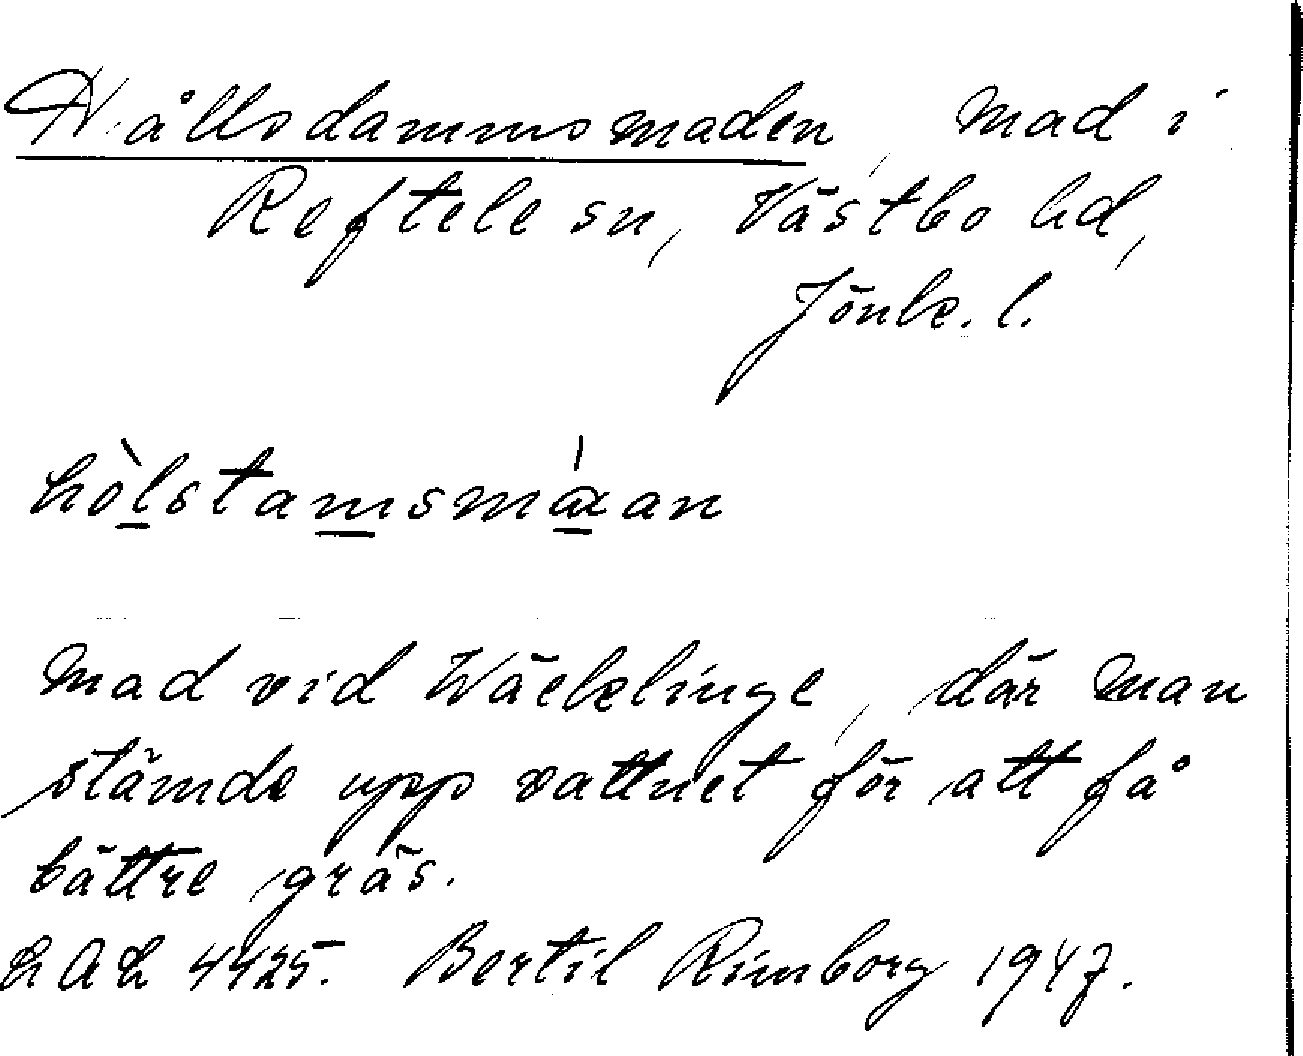 Hållsdammsmaden, mad i
Reftele sn, Västbo hd,
Jönk. l.
hòlstamsmáan
Mad vid Wäcklinge, där man
stämde upp vattnet för att få
bättre gräs.
LAL 4425. Bertil Rimborg 1947.